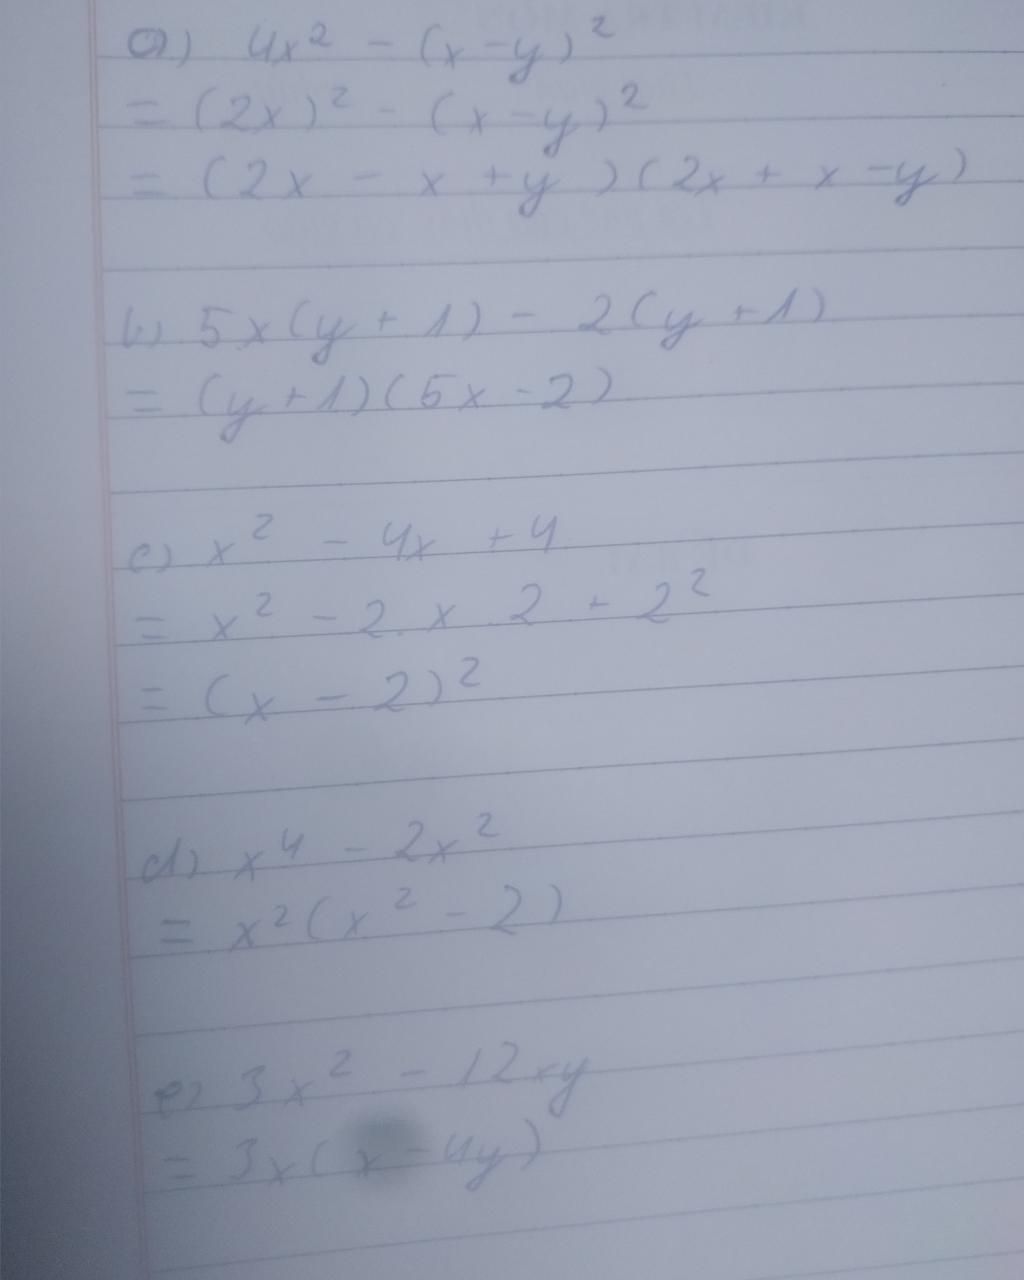 a) 4x² - (x - y)²
= (2x)² - (x - y)²
= (2x - x + y)(2x + x - y)
b) 5x(y + 1) - 2(y + 1)
= (y + 1)(5x - 2)
c) x² - 4x + 4
= x² - 2.x.2 + 2²
= (x - 2)²
d) x⁴ - 2x²
= x²(x² - 2)
e) 3x² - 12xy
= 3x(x - 4y)